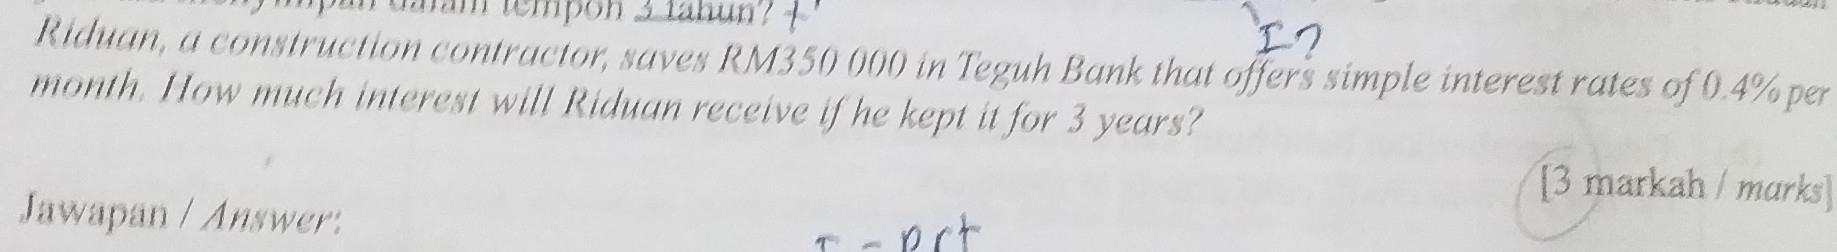 dalam tempoh 3 tahun? t
I?
Riduan, a construction contractor, saves RM350 000 in Teguh Bank that offers simple interest rates of 0.4% per
month. How much interest will Riduan receive if he kept it for 3 years?
[3 markah / marks]
Jawapan / Answer:
I = Prt